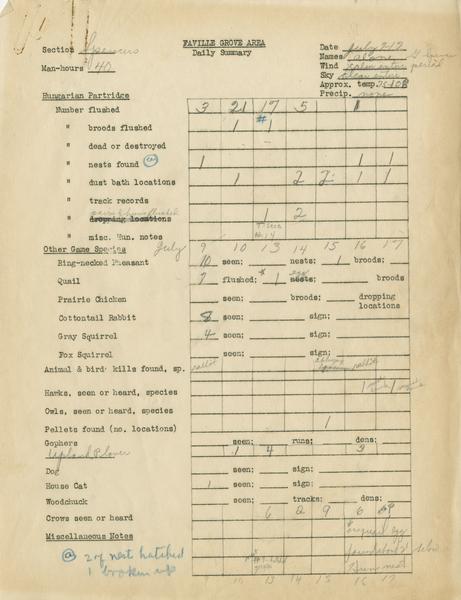 FAVILLE GROVE AREA
Daily Summary
Section Spencers
Man-hours 40
Date July 9-17
Names
Wind Calm entire period
Sky Clear entire
Approx. temp. 75-108
Precip. none
Hungarian Partridge
Number flushed 3 21 17 5 1
" broods flushed 1 1
" dead or destroyed
" nests found 1 1 1
" dust bath locations 1 2 2 1 1
" track records
" dropping locations 1 2
" misc. Hun. notes
Other Game Species July 9 10 13 14 15 16 17
Ring-necked Pheasant 10 seen: nests: 1 broods
Quail 7 flushed: 1 egg nests: broods
Prairie Chicken seen: broods: dropping locations
Cottontail Rabbit 8 seen: sign:
Gray Squirrel 4 seen: sign:
Fox Squirrel seen: sign:
Animal & bird kills found, sp. rabbit rabbit
Hawks, seen or heard, species
Owls, seen or heard, species
Pellets found (no. locations) 1
Gophers seen: runs: dens:
Upland Plover 1 4 3
Dog seen: sign:
House Cat 1 seen: sign:
Woodchuck seen: tracks: dens:
Crows seen or heard 6 2 9 6
Miscellaneous Notes
@ 2 of nest hatched
1 broken up
10 13 14 15 16 17